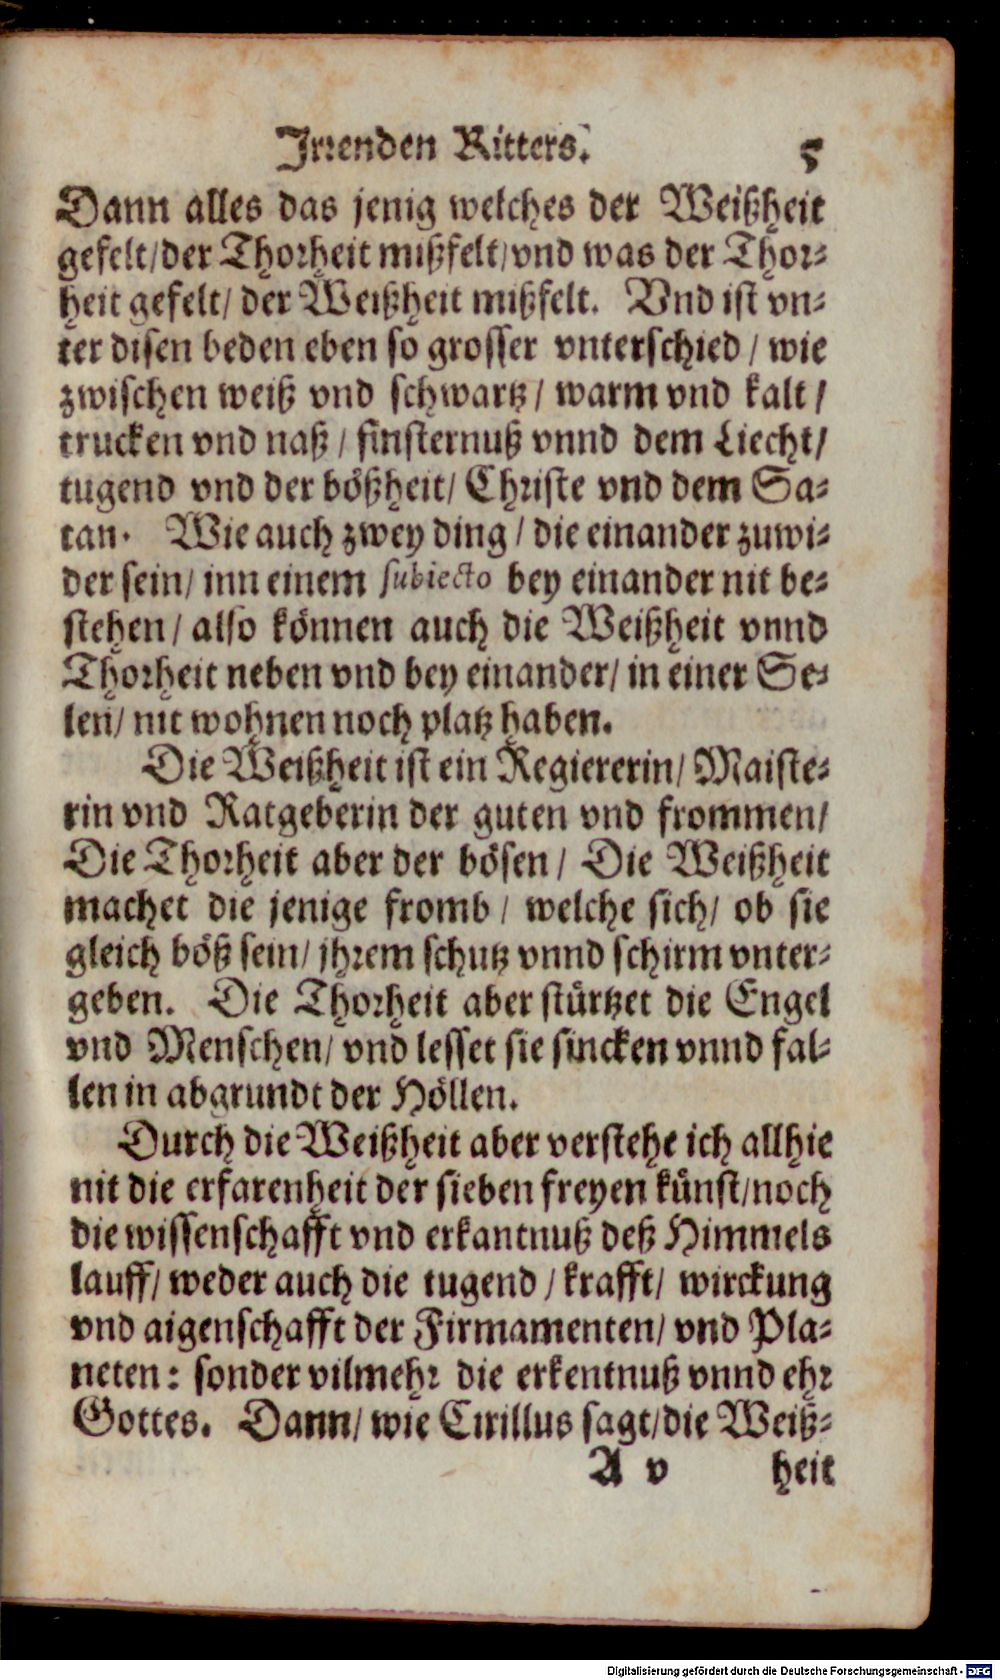 Irrenden Ritters. 5
Dann alles das jenig welches der Weißheit
gefelt/der Thorheit mißfelt/vnd was der Thor-
heit gefelt/ der Weißheit mißfelt. Vnd ist vn-
ter disen beden eben so grosser vnterschied / wie
zwischen weiß vnd schwartz / warm vnd kalt /
trucken vnd naß / finsternuß vnnd dem Liecht/
tugend vnd der bößheit/ Christe vnd dem Sa-
tan. Wie auch zwey ding / die einander zuwi-
der sein/ inn einem subiecto bey einander nit be-
stehen / also können auch die Weißheit vnnd
Thorheit neben vnd bey einander/ in einer See-
len/ nit wohnen noch platz haben.
Die Weißheit ist ein Regiererin/ Maiste-
rin vnd Ratgeberin der guten vnd frommen/
Die Thorheit aber der bösen / Die Weißheit
machet die jenige fromb / welche sich/ ob sie
gleich böß sein/ jhrem schutz vnnd schirm vnter-
geben. Die Thorheit aber stürtzet die Engel
vnd Menschen/ vnd lesset sie sincken vnnd fal-
len in abgrundt der Höllen.
Durch die Weißheit aber verstehe ich allhie
nit die erfarenheit der sieben freyen künst/noch
die wissenschafft vnd erkantnuß deß Himmels
lauff/ weder auch die tugend / krafft/ wirckung
vnd aigenschafft der Firmamenten/ vnd Pla-
neten: sonder vilmehr die erkentnuß vnnd ehr
Gottes. Dann/ wie Cirillus sagt/die Weiß-
A v heit
Digitalisierung gefördert durch die Deutsche Forschungsgemeinschaft - DFG